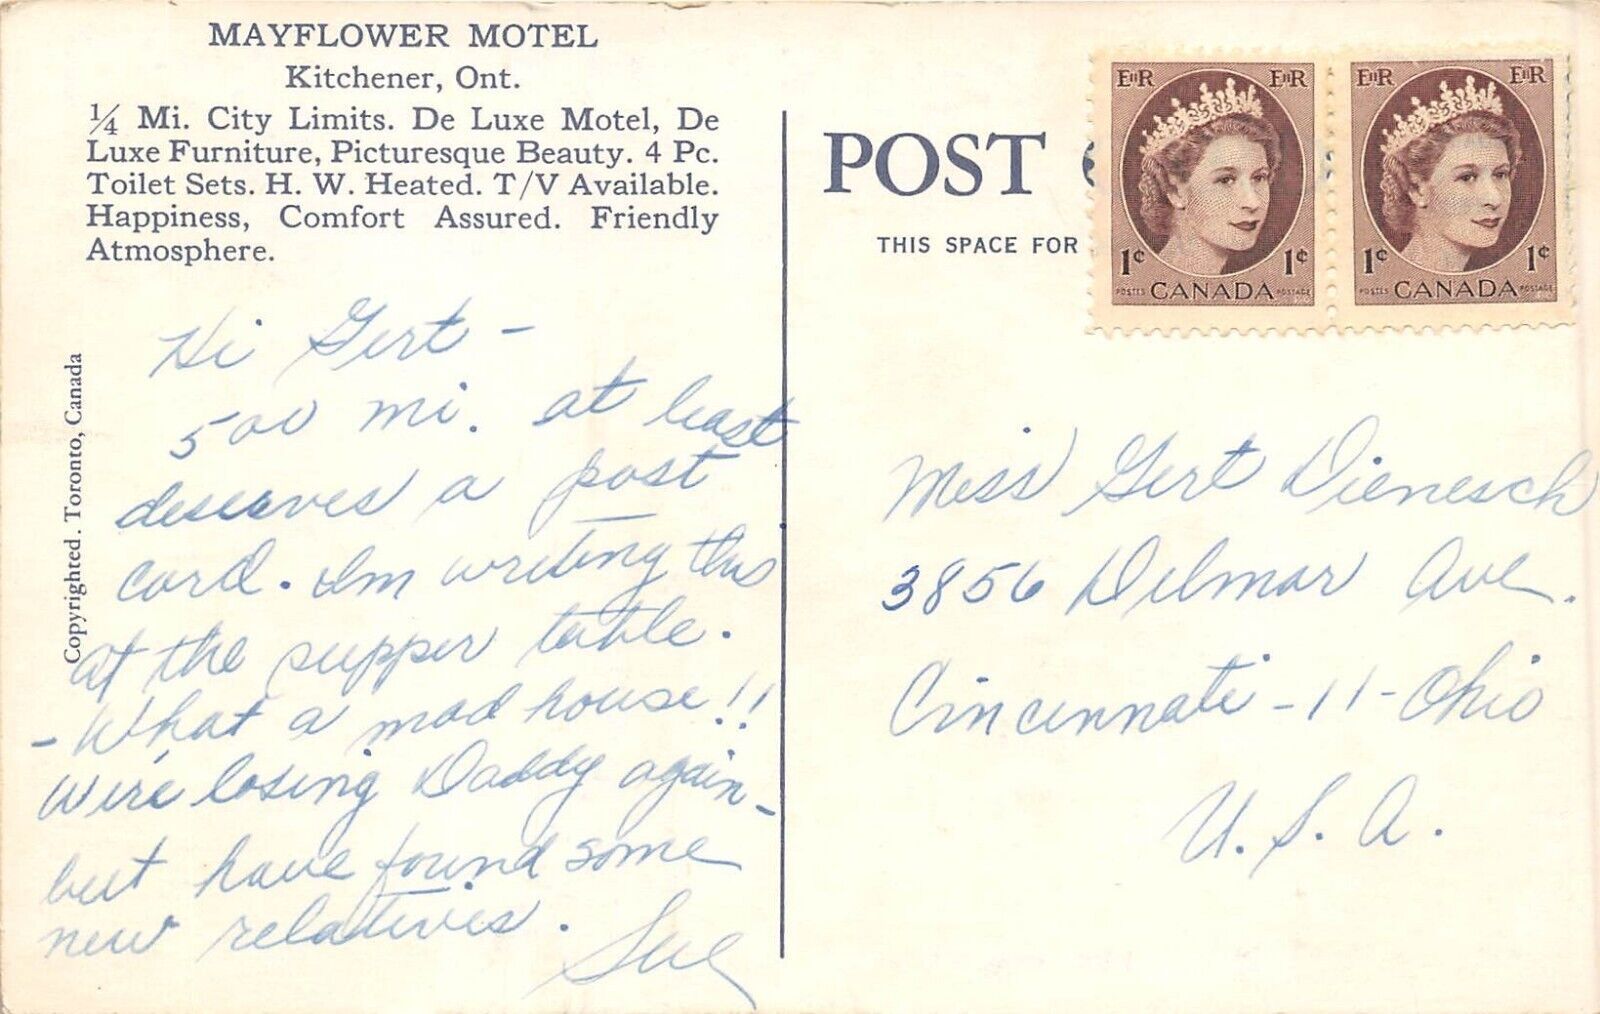 MAYFLOWER MOTEL
Kitchener, Ont.
¼ Mi. City Limits. De Luxe Motel, De
Luxe Furniture, Picturesque Beauty. 4 Pc.
Toilet Sets. H. W. Heated. T/V Available.
Happiness, Comfort Assured. Friendly
Atmosphere.
Copyrighted. Toronto, Canada
Hi Gert -
500 mi. at least
deserves a post
card. Im writing this
at the supper table.
- What a mad house!!
We're losing Daddy again -
but have found some
new relatives.
Sue
POST
THIS SPACE FOR
EIIR EIIR
1¢ 1¢
POSTES CANADA POSTAGE
EIIR EIIR
1¢ 1¢
POSTES CANADA POSTAGE
Miss Gert Dienesch
3856 Delmar Ave.
Cincinnati - 11 - Ohio
U.S.A.